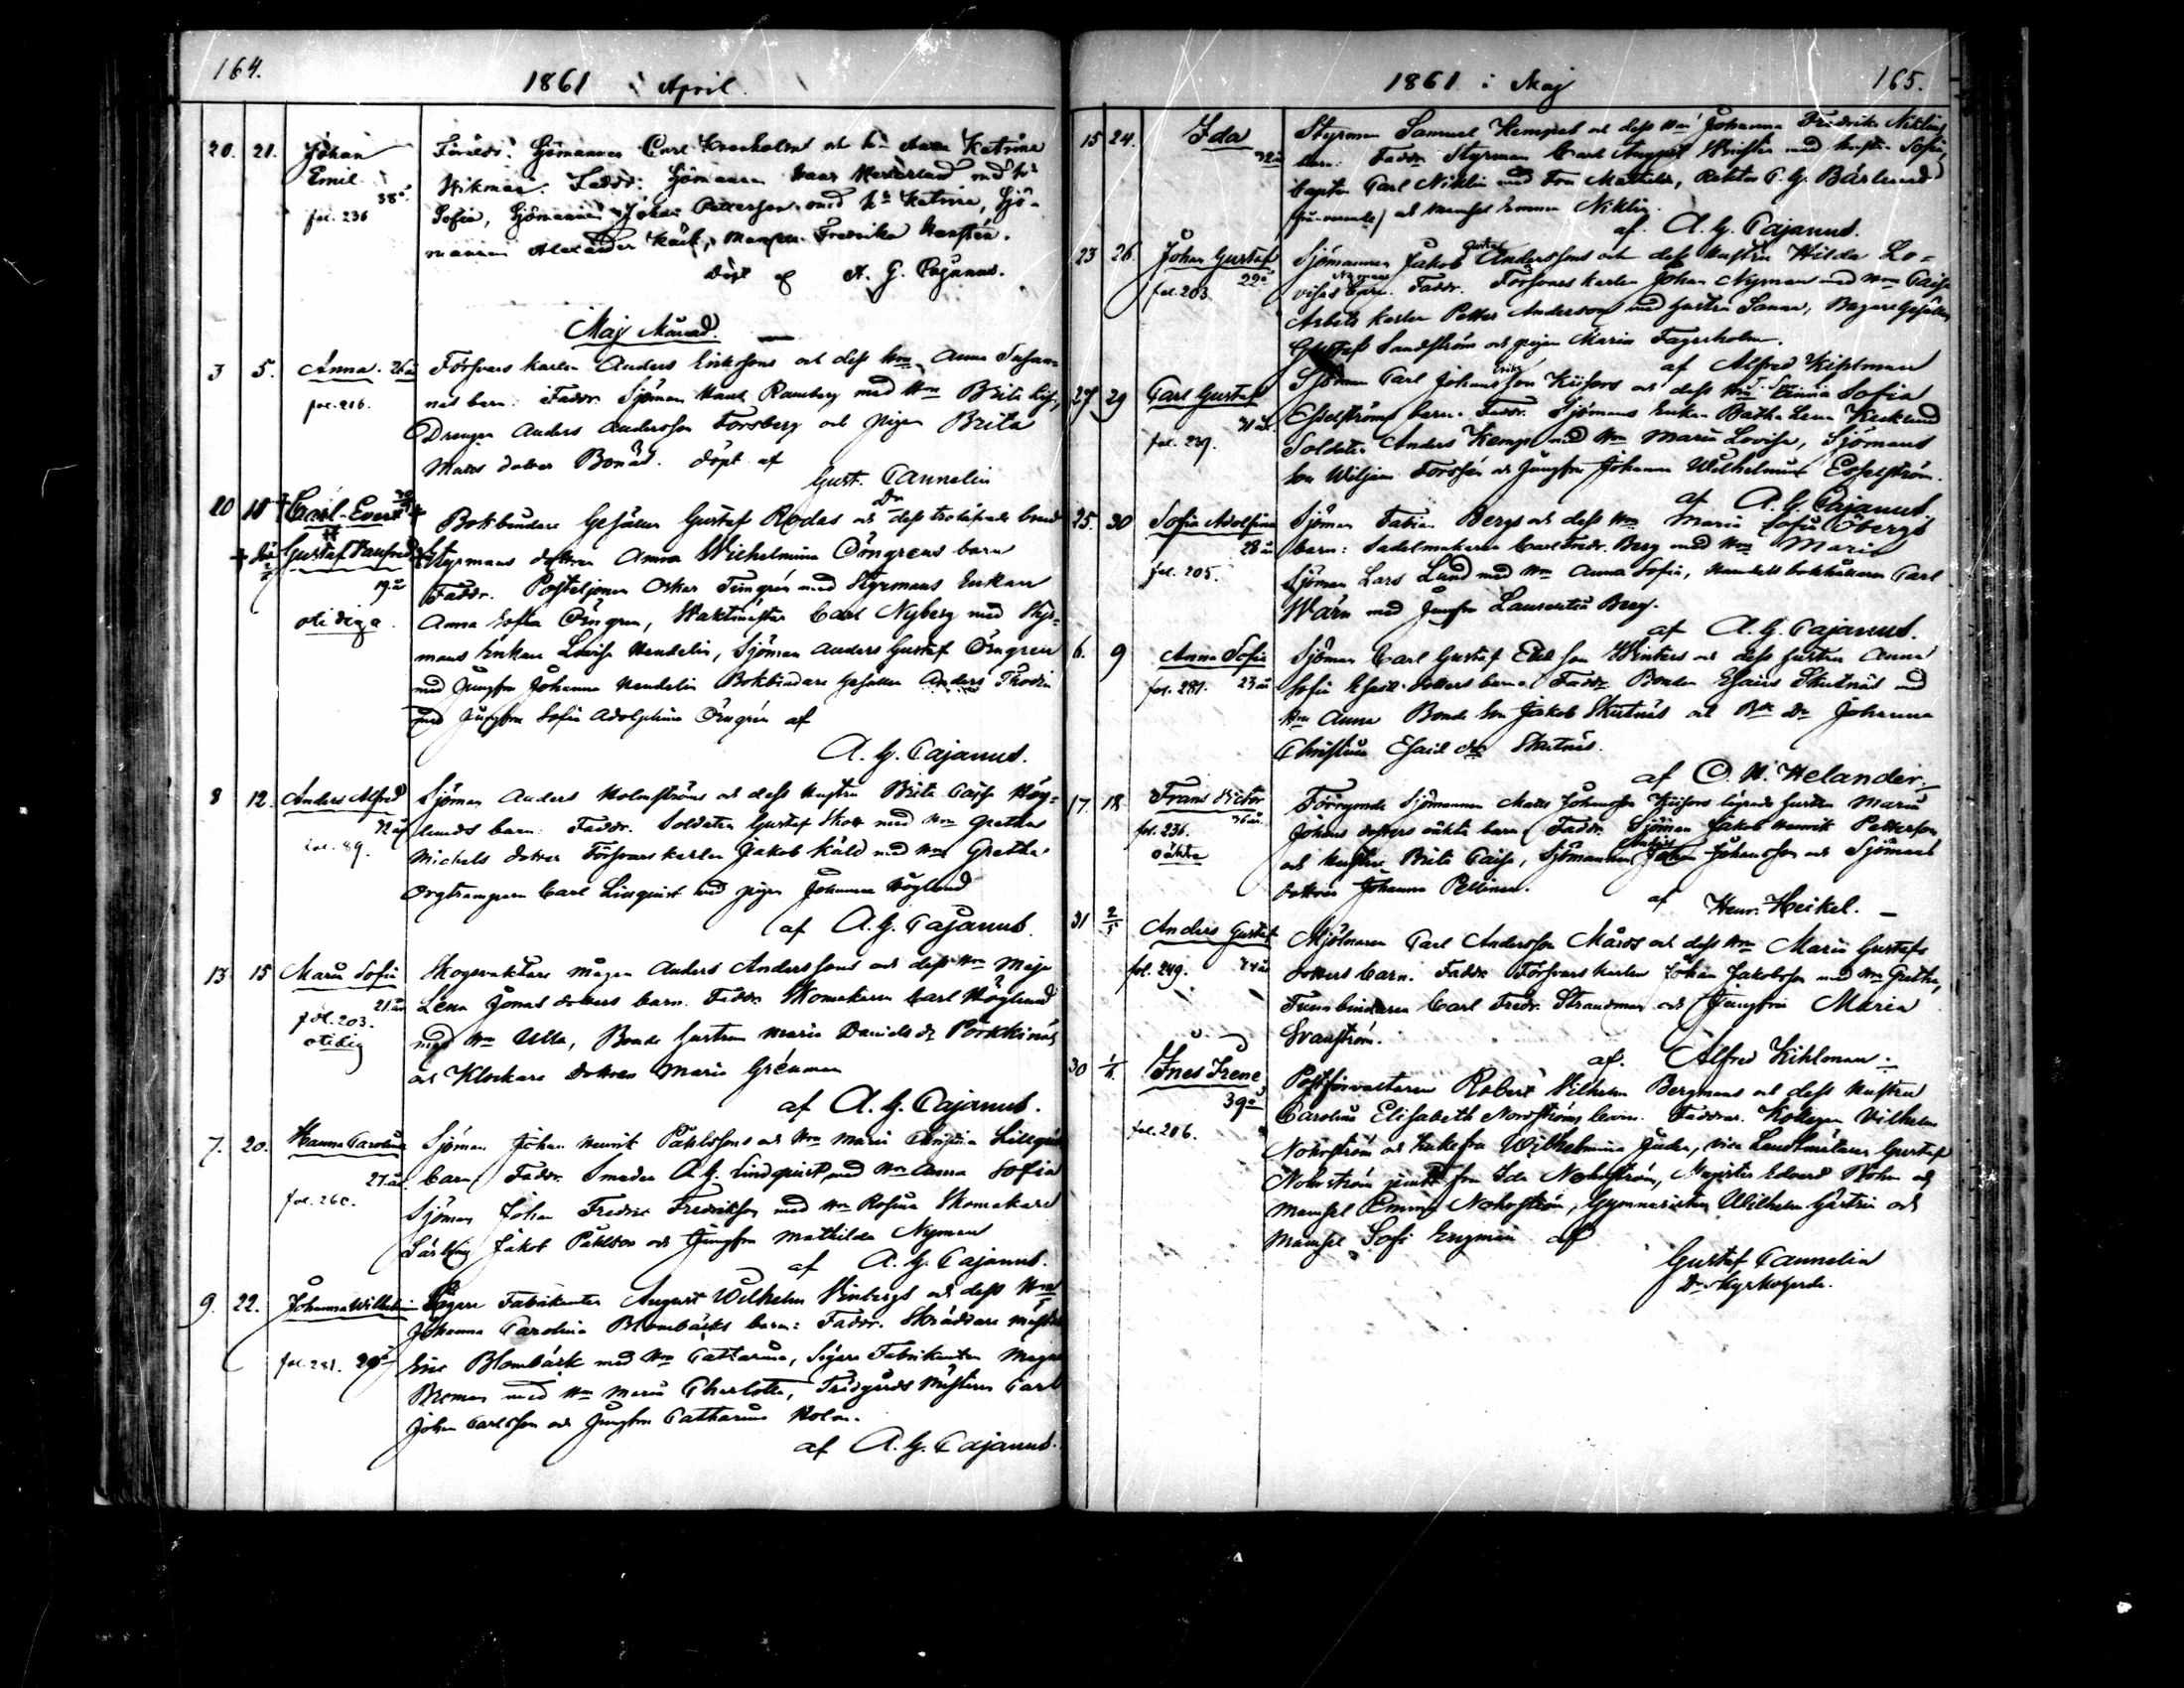 164.
1861 i April.
20. 21. Johan Emil 38 år. fol. 236
Föräldr: Sjömannen Carl Kronholm och h. Anna Katrina
Wikman. Faddr: Sjömannen med h:
Sofia, Sjömannen Johan Petterson med h: Katrina, Sjö-
mannen Alexander Mamsell Fredrika
Döpt af A. G. Cajanus.
Maj Månad.
3 5. Anna. 26 år fol. 216.
Försvars karlen Anders Erikssons och dess hm Anna Susan-
nas barn. Faddr. Sjöman Ramberg med Hm Brita Caj.,
Drengen Anders Andersson Forsberg och pigan Brita
Mats dotter Bonäs. döpt af
Gust. Cannelin
10 18 Carl Evert
Gustaf Manfred 19 år
oädiga.
Bokbindare Gesällen Gustaf Rodas och dess trolofvade brud
Styrmans dottren Anna Wilhelmina Öngrens barn
Faddr. Postiljonen Oskar med Styrmans Enkan
Anna Sofia Öngren, Waktmäster Carl Nyberg med Styr-
mans Enkan Lovisa Wendelin, Sjöman Anders Gustaf Öngren
med Jungfru Johanna Wendelin Bokbindare Gesällen Anders Thodin
med Jungfru Sofia Adolphina Öngrén af
A. G. Cajanus.
8 12. Anders Alfred 32 år fol. 89.
Sjöman Anders Holmströms och dess hustru Brita Caisa Hög-
lunds barn. Faddr. Soldaten Gustaf Skott med Hm Gretha
Michels dotter Försvarskarlen Jakob Käld med Hm Gretha
Orgtrampare Carl Linquist med pigan Johanna Höglund
af A. G. Cajanus.
13 15 Maria Sofia 21 år fol. 203. oädig
Skogsvaktare mågen Anders Anderssons och dess Hm Maja
Lena Jonas dotters barn. Faddr. Skomakaren Carl Höglund
med Hm Ulla, Bonde hustrun Maria Daniels dr Pörkkinäs
och Klockare dottren Maria Grénman
af A. G. Cajanus.
7. 20. Hanna Carolina 27 år. fol. 260.
Sjöman Johan Henrik Påhlssons och Hm Maria Christina Lillqvists
barn Faddr. Smeden A. G. Lindquist med Hm Anna Sofia
Sjöman Johan Fredric Fredrikson med Hm Rosina Skomakare
Lärling Jakob Påhlson och Jungfru Mathilda Nyman
af A. G. Cajanus.
9. 22. Johanna Wilhelmina fol. 281. 29 år
Sigare Fabrikanten August Wilhelm Vinbergs och dess Hm
Johanna Carolina Blombäcks barn: Faddr. Skräddare mäst
Eric Blombäck med Hm Catharina, Sigare Fabrikanten Magnus
Broman med Hm Maria Charlotta, Trädgårds Mästaren Carl
Johan Carlsson och Jungfru Catharina Holm.
af A. G. Cajanus.
1861 i Maj 165.
15 24. Ida 32 år
Styrman Samuel Hempels och dess Hm Johanna Fredrika Niklins
barn. Faddr. Styrman Carl August med hustru Sofia,
Capten Carl Niklin med Fru Mathilda, Rektor C. G. Bärlund
(frånvarande) och Mamsell Emma Niklin.
af. A. G. Cajanus.
23 26. Johan Gustaf 22 år fol. 203
Sjömannen Jakob Gustaf Anderssons och dess hustru Hilda Lo-
visas Nyman barn. Faddr. Försvars karlen Johan Nyman med Hm Caisa
Arbets karlen Petter Anderson med hustru Sanna, Bagare Gesällen
Gustaf Sandström och pigan Maria Fagerholm.
af Alfred Kihlman
27 29 Carl Gustaf 31 år. fol. 239.
Sjöman Carl Johansson Kiifors och dess Hm Anna Sofia
Esselströms barn. Faddr. Sjömans Enkan Batha Lena Kecklund
Soldaten Anders Kempe med Hm Maria Lovisa, Sjömans
son Wiljam Forssén och Jungfru Johanna Wilhelmina Esselström.
af A. G. Cajanus.
25. 30 Sofia Adolfina 28 år fol. 205.
Sjöman Fabian Bergs och dess Hm Maria Sofia Öbergs
barn: Sadelmakaren Carl Fredr. Berg med Hm Maria
Sjöman Lars Lund med Hm Anna Sofia, Handels bokhållaren Carl
Wärn med Jungfru Laurentia Berg.
af A. G. Cajanus.
6. 9 Anna Sofia fol. 281. 23 år
Sjöman Carl Gustaf son Winters och dess hustru Anna
Sofia Esaid. dotters barn. Faddr Bonden Esaias Skutnäs med
Hm Anna Bonde son Jakob Skutnäs och Bde Dr Johanna
Christina Esaid. dr Skutnäs.
af O. H. Helander.
17. 18. Frans Victor 36 år. fol. 236. oäkta
Förrymde Sjömannen Mats Johansson Kiifors hustru Maria
Johans dotters oäkta barn. Faddr. Sjöman Jakob Henrik Petterson
och hustru Brita Caisa, Sjömannen Anders Johansson och Sjömans
dottren Johanna Pellinen.
af Henr. Heikel.
31 2/5 Anders Gustaf fol. 249. 44 år
Mjölnaren Carl Andersson Mårds och dess Hm Maria Gustafs
dotters barn. Faddr. Försvars karlen Johan Jakobsson med Hm Gretha,
Tunnbindaren Carl Fredr. Strandman och Jungfru Maria
Svanström.
af. Alfred Kihlman.
30 1/6. Ines Irene 39 år fol. 206.
Postförvaltaren Robert Vilhelm Bergmans och dess Hustru
Carolina Elisabeth Nordströms barn. Faddrar. Kollegan Vilhelm
Nohrström och Enkefru Wilhelmina Juden, vice Landtmätaren Gustaf
Nohrström jemte fru Ida Nohrström, Magister Edvard Bohm och
Mamsel Emma Nohrström, Gymnasisten Wilhelm Gästrin och
Mamsel Sofi Engman af
Gustaf Cannelin
Dr Kyrkoherde.